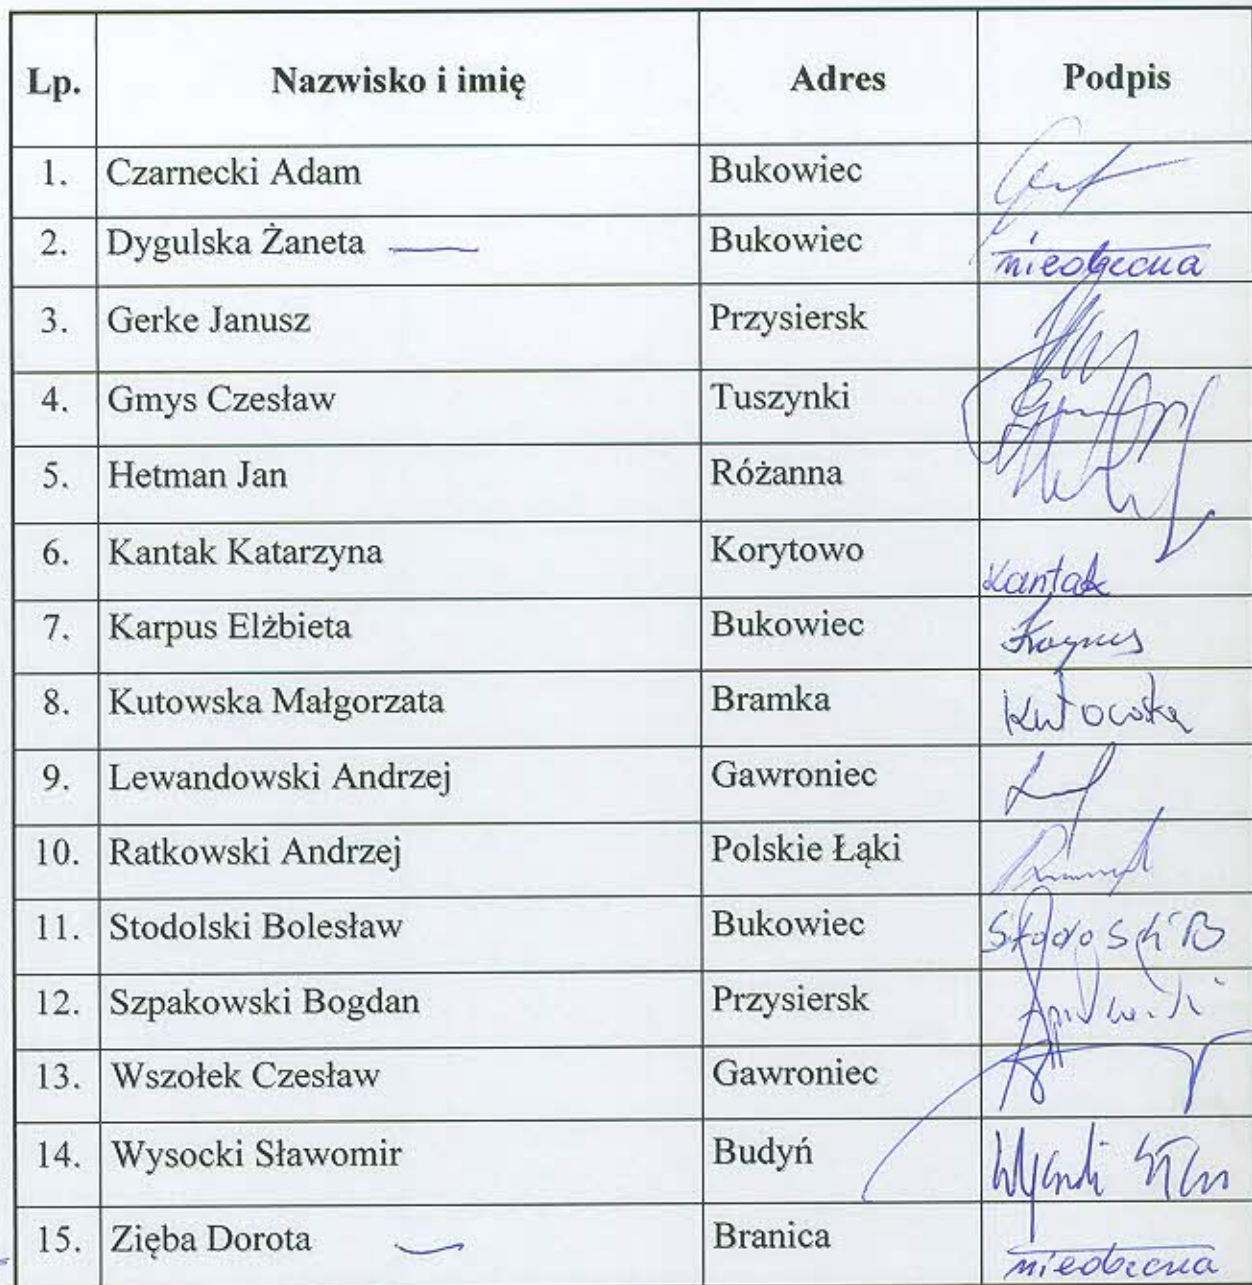 Lp. Nazwisko i imię Adres Podpis
1. Czarnecki Adam Bukowiec
2. Dygulska Żaneta Bukowiec nieobecna
3. Gerke Janusz Przysiersk
4. Gmys Czesław Tuszynki
5. Hetman Jan Różanna
6. Kantak Katarzyna Korytowo Kantak
7. Karpus Elżbieta Bukowiec Karpus
8. Kutowska Małgorzata Bramka Kutowska
9. Lewandowski Andrzej Gawroniec
10. Ratkowski Andrzej Polskie Łąki
11. Stodolski Bolesław Bukowiec
12. Szpakowski Bogdan Przysiersk
13. Wszołek Czesław Gawroniec
14. Wysocki Sławomir Budyń
15. Zięba Dorota Branica nieobecna